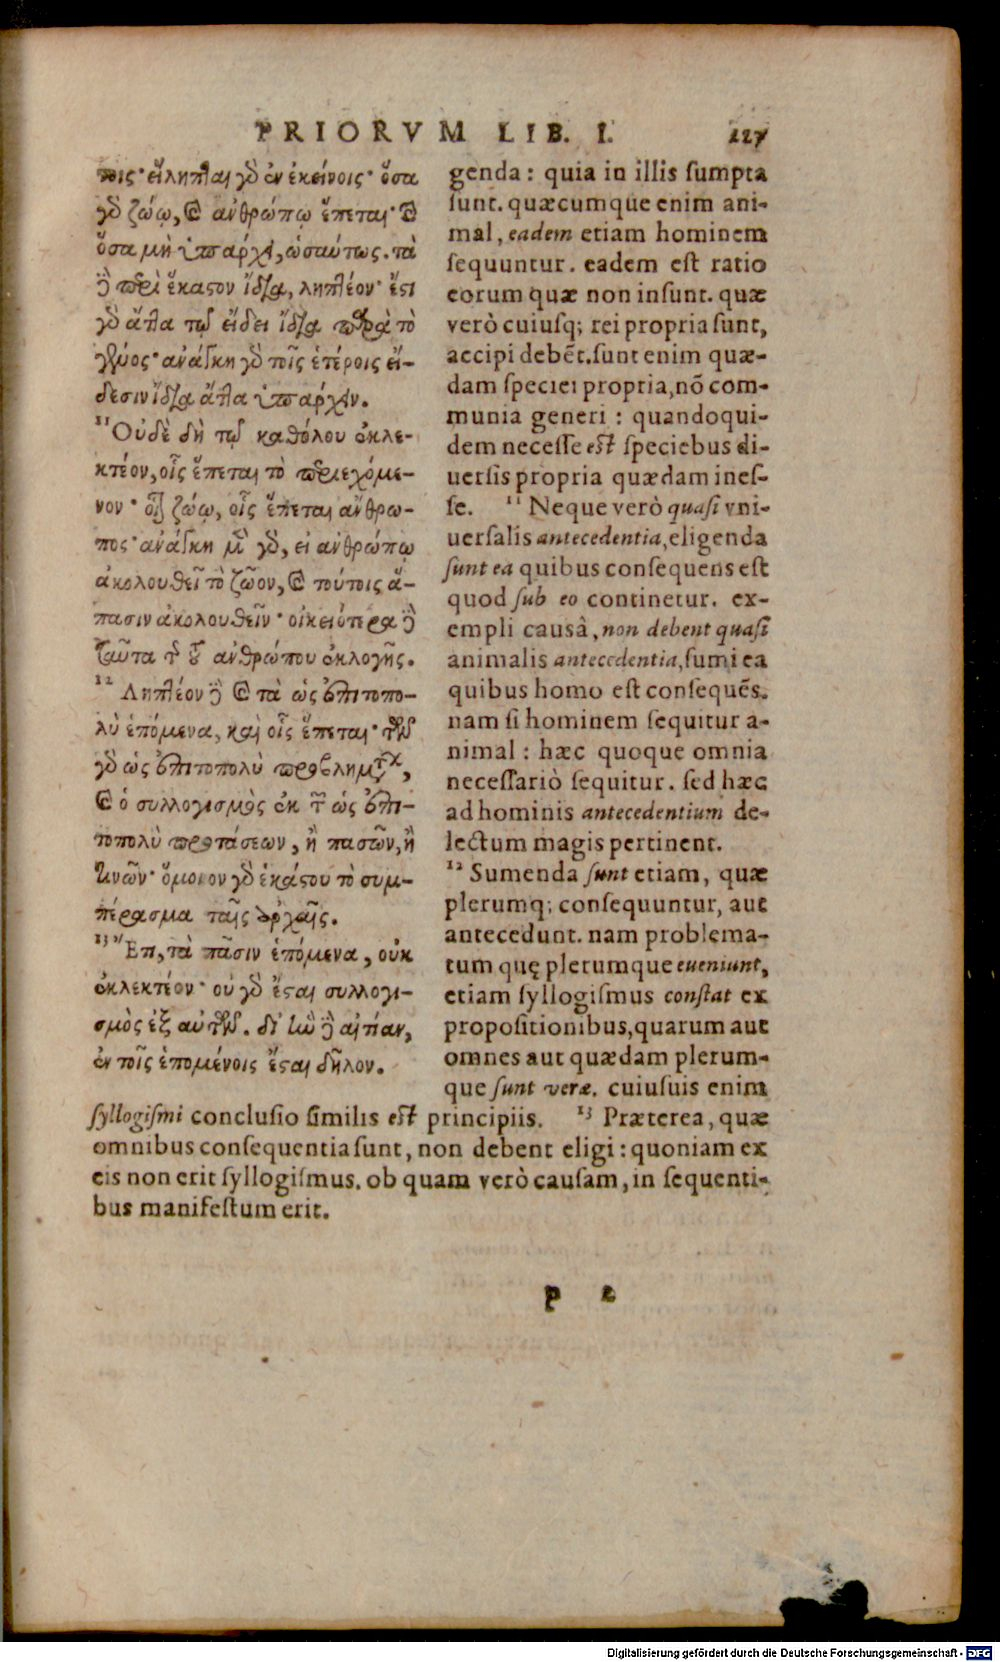 PRIORVM LIB. I. 227
τοις· εἴληπται γὸ ἐν ἐκείνοις· ὅσα
γὸ ζώῳ, καὶ ἀνθρώπῳ ἕπεται· καὶ
ὅσα μὴ ὑπάρχει, ὡσαύτως. τὰ
δὲ περὶ ἕκαστον ἴδια, ληπτέον· ἔστι
γὸ ἄττα τῷ εἴδει ἴδια παρὰ τὸ
γένος· ἀνάγκη γὸ τοῖς ἑτέροις εἴ-
δεσιν ἴδια ἄττα ὑπάρχειν.
11 Οὐδὲ δὴ τῷ καθόλου ἐκλε-
κτέον, οἷς ἕπεται τὸ περιεχόμε-
νον· οἷον ζώῳ, οἷς ἕπεται ἄνθρω-
πος· ἀνάγκη μὲν γὸ, εἰ ἀνθρώπῳ
ἀκολουθεῖ τὸ ζῶον, καὶ τούτοις ἅ-
πασιν ἀκολουθεῖν· οἰκειότερα δὲ
ταῦτα τῆς τοῦ ἀνθρώπου ἐκλογῆς.
12 Ληπτέον δὲ καὶ τὰ ὡς ἐπιτοπο-
λὺ ἑπόμενα, καὶ οἷς ἕπεται· τῶν
γὸ ὡς ἐπιτοπολὺ προβλημάτων,
καὶ ὁ συλλογισμὸς ἐκ τῶν ὡς ἐπι-
τοπολὺ προτάσεων, ἢ πασῶν, ἢ
τινῶν· ὅμοιον γὸ ἑκάστου τὸ συμ-
πέρασμα ταῖς ἀρχαῖς.
13 Ἔτι, τὰ πᾶσιν ἑπόμενα, οὐκ
ἐκλεκτέον· οὐ γὸ ἔσται συλλογι-
σμὸς ἐξ αὐτῶν. δι᾽ ἣν δὲ αἰτίαν,
ἐν τοῖς ἑπομένοις ἔσται δῆλον.
genda: quia in illis sumpta
sunt. quæcumque enim ani-
mal, eadem etiam hominem
sequuntur. eadem est ratio
eorum quæ non insunt. quæ
verò cuiusq; rei propria sunt,
accipi debēt. sunt enim quæ-
dam speciei propria, nō com-
munia generi: quandoqui-
dem necesse est speciebus di-
uersis propria quædam ines-
se. 11 Neque verò quasi vni-
uersalis antecedentia, eligenda
sunt ea quibus consequens est
quod sub eo continetur. ex-
empli causâ, non debent quasi
animalis antecedentia, sumi ea
quibus homo est consequēs.
nam si hominem sequitur a-
nimal: hæc quoque omnia
necessariò sequitur. sed hæc
ad hominis antecedentium de-
lectum magis pertinent.
12 Sumenda sunt etiam, quæ
plerumq; consequuntur, aut
antecedunt. nam problema-
tum quę plerumque eueniunt,
etiam syllogismus constat ex
propositionibus, quarum aut
omnes aut quædam plerum-
que sunt veræ. cuiusuis enim
syllogismi conclusio similis est principiis. 13 Præterea, quæ
omnibus consequentia sunt, non debent eligi: quoniam ex
eis non erit syllogismus. ob quam verò causam, in sequenti-
bus manifestum erit.
P 2
Digitalisierung gefördert durch die Deutsche Forschungsgemeinschaft - DFG